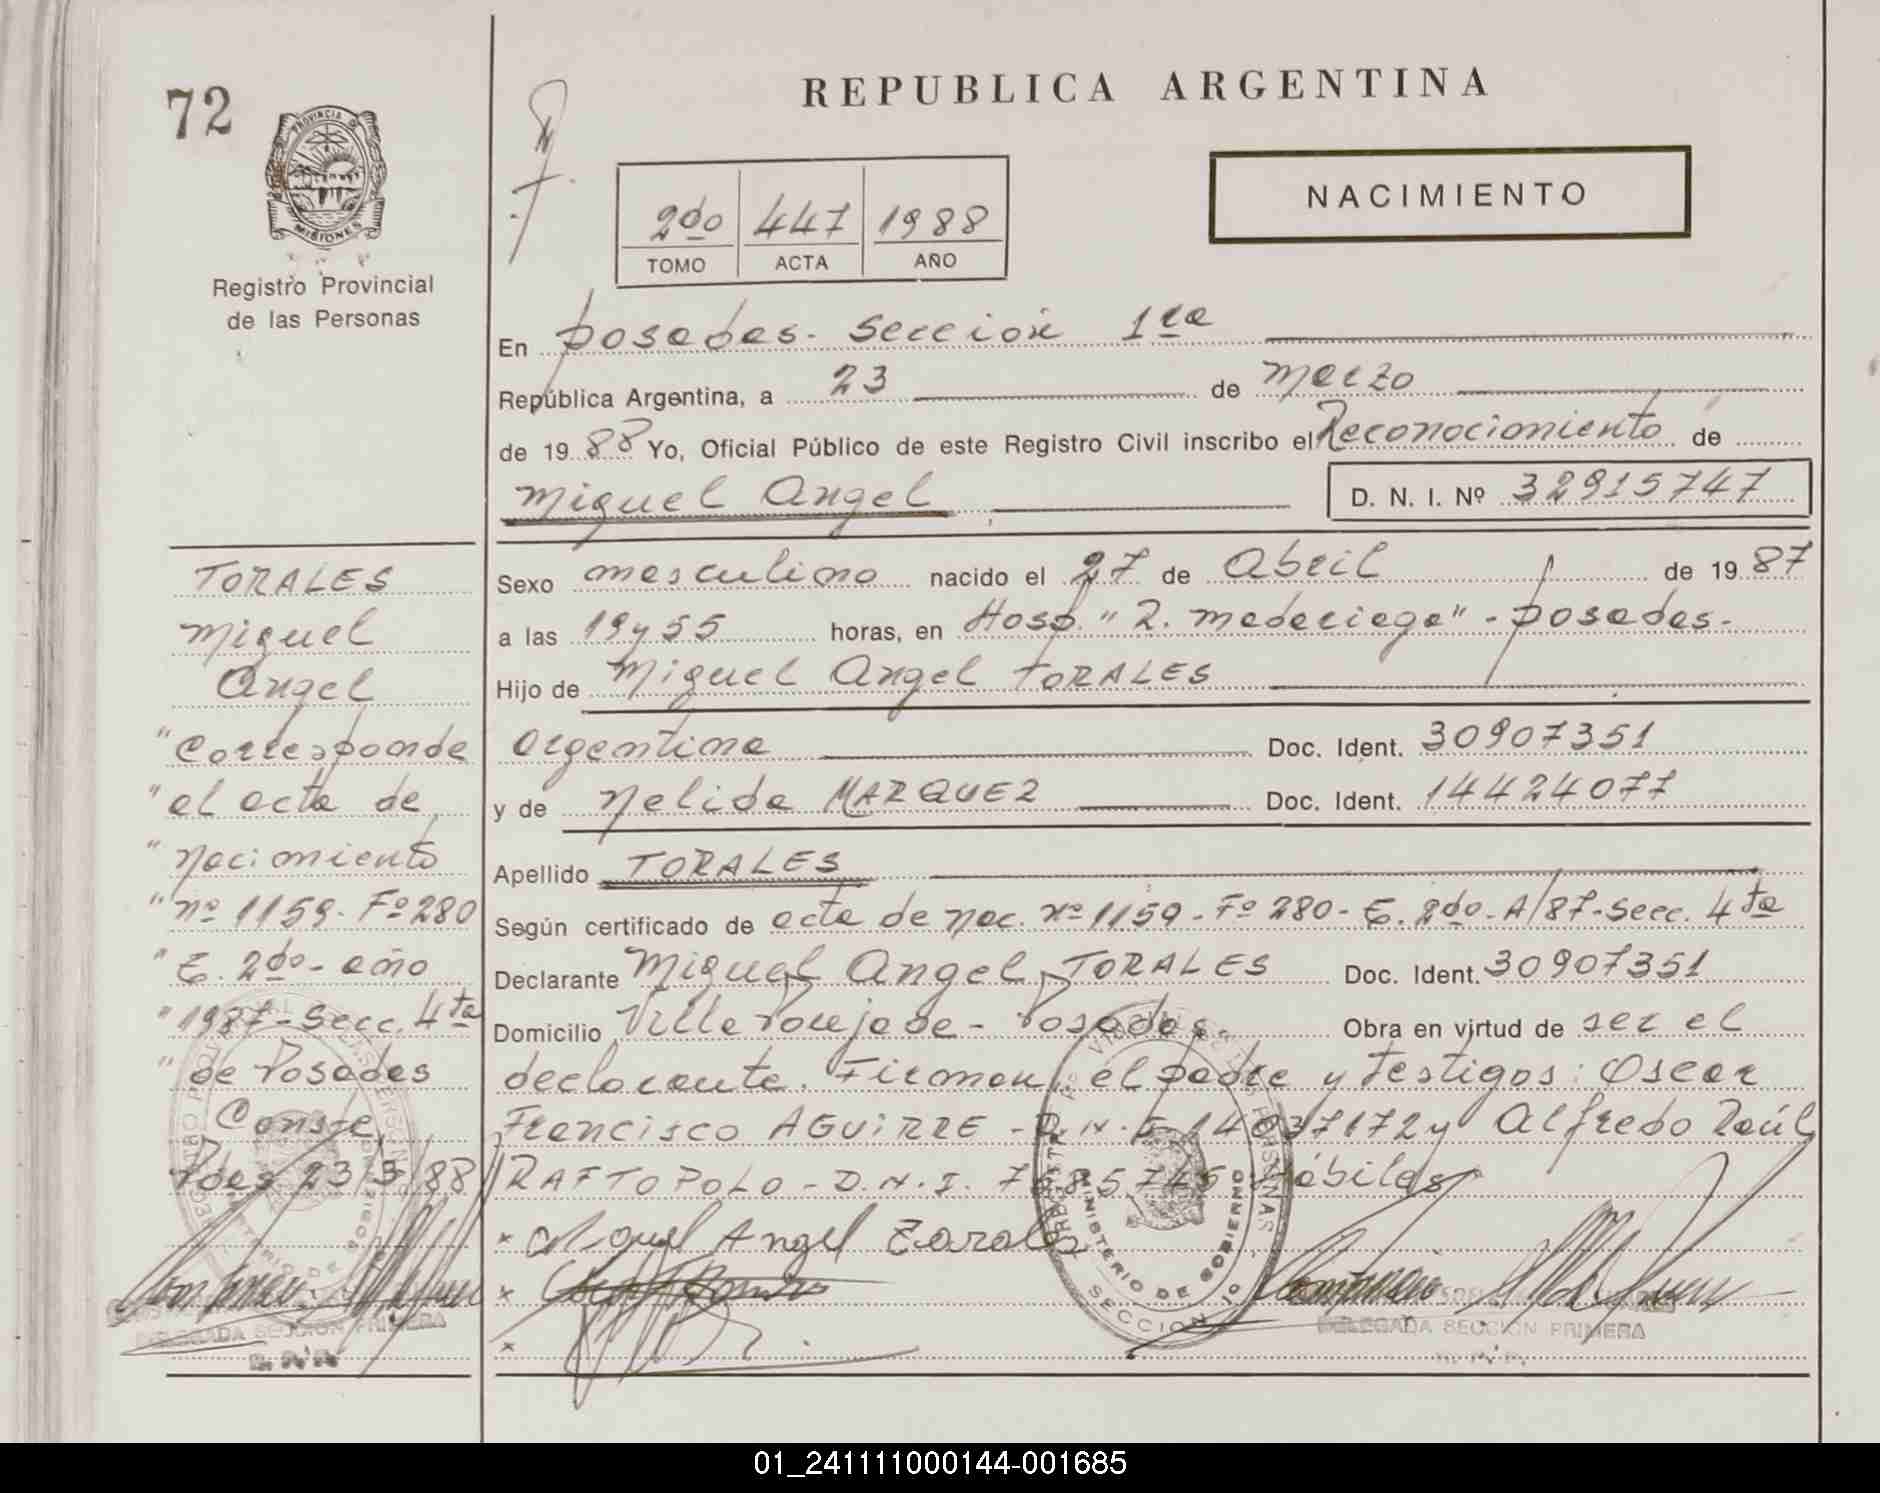 72
PROVINCIA DE
MISIONES
Registro Provincial
de las Personas
REPUBLICA ARGENTINA
NACIMIENTO
2do 447 1988
TOMO ACTA AÑO
En Posadas - Sección 1ra
República Argentina, a 23 de Marzo
de 1988 Yo, Oficial Público de este Registro Civil inscribo el Reconocimiento de
Miguel Angel D. N. I. Nº 32915747
Sexo masculino nacido el 27 de Abril de 1987
a las 19 y 55 horas, en Hosp. "R. Madariaga" - Posadas -
Hijo de Miguel Angel TORALES
argentina Doc. Ident. 30907351
y de Nelida MARQUEZ Doc. Ident. 14424077
Apellido TORALES
Según certificado de acta de nac. Nº 1159 - Fº 280 - T. 2do - A/87 - Secc. 4ta
Declarante Miguel Angel TORALES Doc. Ident. 30907351
Domicilio Villa Poujade - Posadas - Obra en virtud de ser el
declarante. Firman: el padre y testigos: Oscar
Francisco AGUIRRE - D.N.I. 14037172 y Alfredo Raúl
RAFTOPOLO - D.N.I. 7685745 Hábiles
x Miguel Angel Torales
x
x
MINISTERIO DE GOBIERNO
SECCION 1a
DELEGADA SECCION PRIMERA
TORALES
Miguel
Angel
"Corresponde
"al acta de
"nacimiento
"nº 1159 - Fº 280
"T. 2do - año
"1987 - Secc. 4ta
"de Posadas
Conste
Pdas 23/3/88
DELEGADA SECCION PRIMERA
01_241111000144-001685